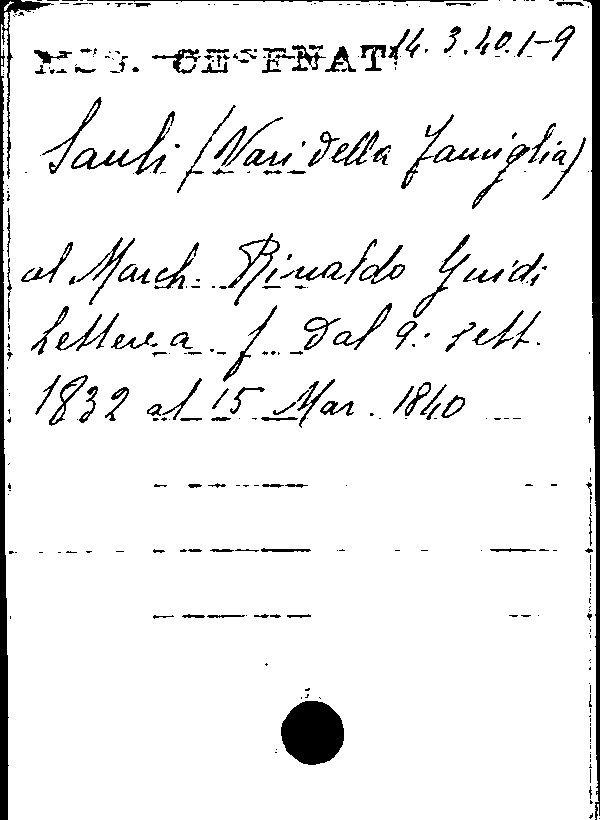 MSS. CESENATI 14.3.40.1-9
Sauli (Vari della famiglia)
al March. Rinaldo Guidi
Lettere a. f. dal 9. sett.
1832 al 15 Mar. 1840